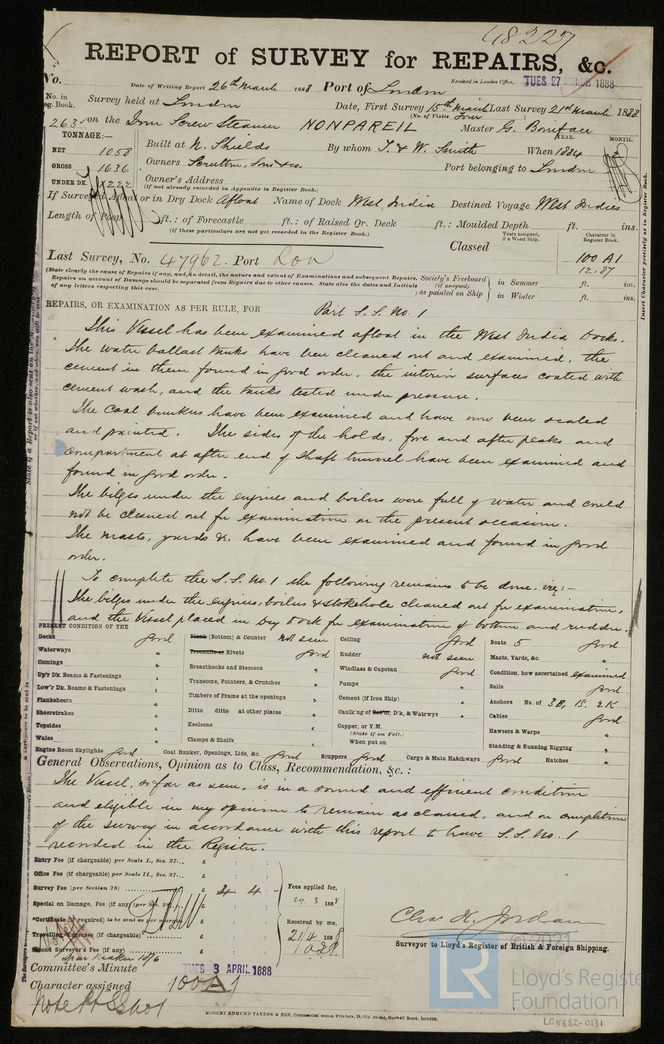 48227
REPORT of SURVEY for REPAIRS, &c.
No.
Date of Writing Report 26th March 1888 Port of London
Received in London Office, TUES 27 MARCH 1888
No. in Reg. Book.
Survey held at London Date, First Survey 15th March Last Survey 21st March 1888
(No. of Visits Four
263 on the Iron Screw Steamer NONPAREIL Master G. Boniface
TONNAGE:—
YEAR. MONTH.
NET 1058
Built at N. Shields By whom T. & W. Smith When 1884
GROSS 1636
Owners Scrutton, Sons & Co Port belonging to London
UNDER DK. 1222
Owner's Address
(if not already recorded in Appendix to Register Book.)
If Surveyed Afloat or in Dry Dock Afloat Name of Dock West India Destined Voyage West Indies
Length of Poop ft.: of Forecastle ft.: of Raised Qr. Deck ft.: Moulded Depth ft. ins.
(if these particulars are not yet recorded in the Register Book.)
Years assigned, if a Wood Ship.
Character in Register Book.
Classed 100 A1
12.87
Last Survey, No. 47962. Port Lon
(State clearly the cause of Repairs if any, and, in detail, the nature and extent of Examinations and subsequent Repairs.
Repairs on account of Damage should be separated from Repairs due to other causes. State also the dates and Initials
of any letters respecting this case.
Society's Freeboard (if assigned) as painted on Ship
in Summer ft. ins.
in Winter ft. ins.
Insert Character precisely as in Register Book.
REPAIRS, OR EXAMINATION AS PER RULE, FOR Part S.S. No. 1
This Vessel has been examined afloat in the West India Docks.
The water ballast tanks have been cleaned out and examined, the
cement in them found in good order, the interior surfaces coated with
cement wash, and the tanks tested under pressure.
The coal bunkers have been examined and have now been scaled
and painted. The sides of the holds, fore and after peaks and
compartment at after end of shaft tunnel have been examined and
found in good order.
The bilges under the engines and boilers were full of water and could
not be cleaned out for examination on the present occasion.
The masts, yards &c. have been examined and found in good
order.
To complete the S.S. No. 1 the following remains to be done, viz:—
The bilges under the engines, boilers & stokehole cleaned out for examination,
and the Vessel placed in Dry Dock for examination of bottom and rudder.
PRESENT CONDITION OF THE
Decks good
Waterways "
Comings "
Up'r Dk. Beams & Fastenings "
Low'r Dk. Beams & Fastenings "
Planksheers "
Sheerstrakes "
Topsides "
Wales "
Engine Room Skylights good
Plank (Bottom) & Counter not seen
Treenails or Rivets good
Breasthooks and Stemson "
Transoms, Pointers, & Crutches "
Timbers of Frame at the openings "
Ditto ditto at other places "
Keelsons "
Clamps & Shelfs "
Coal Bunker, Openings, Lids, &c. good
Ceiling good
Rudder not seen
Windlass & Capstan good
Pumps "
Cement (if Iron Ship) "
Caulk'ng of Bot'm, D'k, & Watrwys "
Copper, or Y.M.
(State if on Felt.)
When put on
Scuppers good
Cargo & Main Hatchways good
Boats 5 good
Masts, Yards, &c. "
Condition, how ascertained examined
Sails good
Anchors No. of 3B, 1S, 2K
Cables good
Hawsers & Warps "
Standing & Running Rigging "
Hatches "
General Observations, Opinion as to Class, Recommendation, &c.:
The Vessel, so far as seen, is in a sound and efficient condition
and eligible in my opinion to remain as classed, and on completion
of the survey in accordance with this report to have S.S. No. 1
recorded in the Register.
Entry Fee (if chargeable) per Scale I., Sec. 27.. £ : :
Office Fee (if chargeable) per Scale II., Sec. 27... £ : :
Survey Fee (per Section 28) £ 4 : 4 : -
Special on Damage, Fee (if any) (per Sec. 28). £ : :
*Certificate (if required) to be sent as per margin £ : :
Travelling Expenses (if chargeable) £ : :
Second Surveyor's Fee (if any) £ : :
Fees applied for,
29.3 1888
Received by me,
21/4 1888
Chas. H. Jordan
Surveyor to Lloyd's Register of British & Foreign Shipping.
Committee's Minute TUES 3 APRIL 1888
Character assigned 100A1
ROBERT EDMUND TAYLOR & SON, Commercial Steam Printers, 19, Old Street, Goswell Road, London.
© 2021
LR
Lloyd's Register
Foundation
LON682-0131